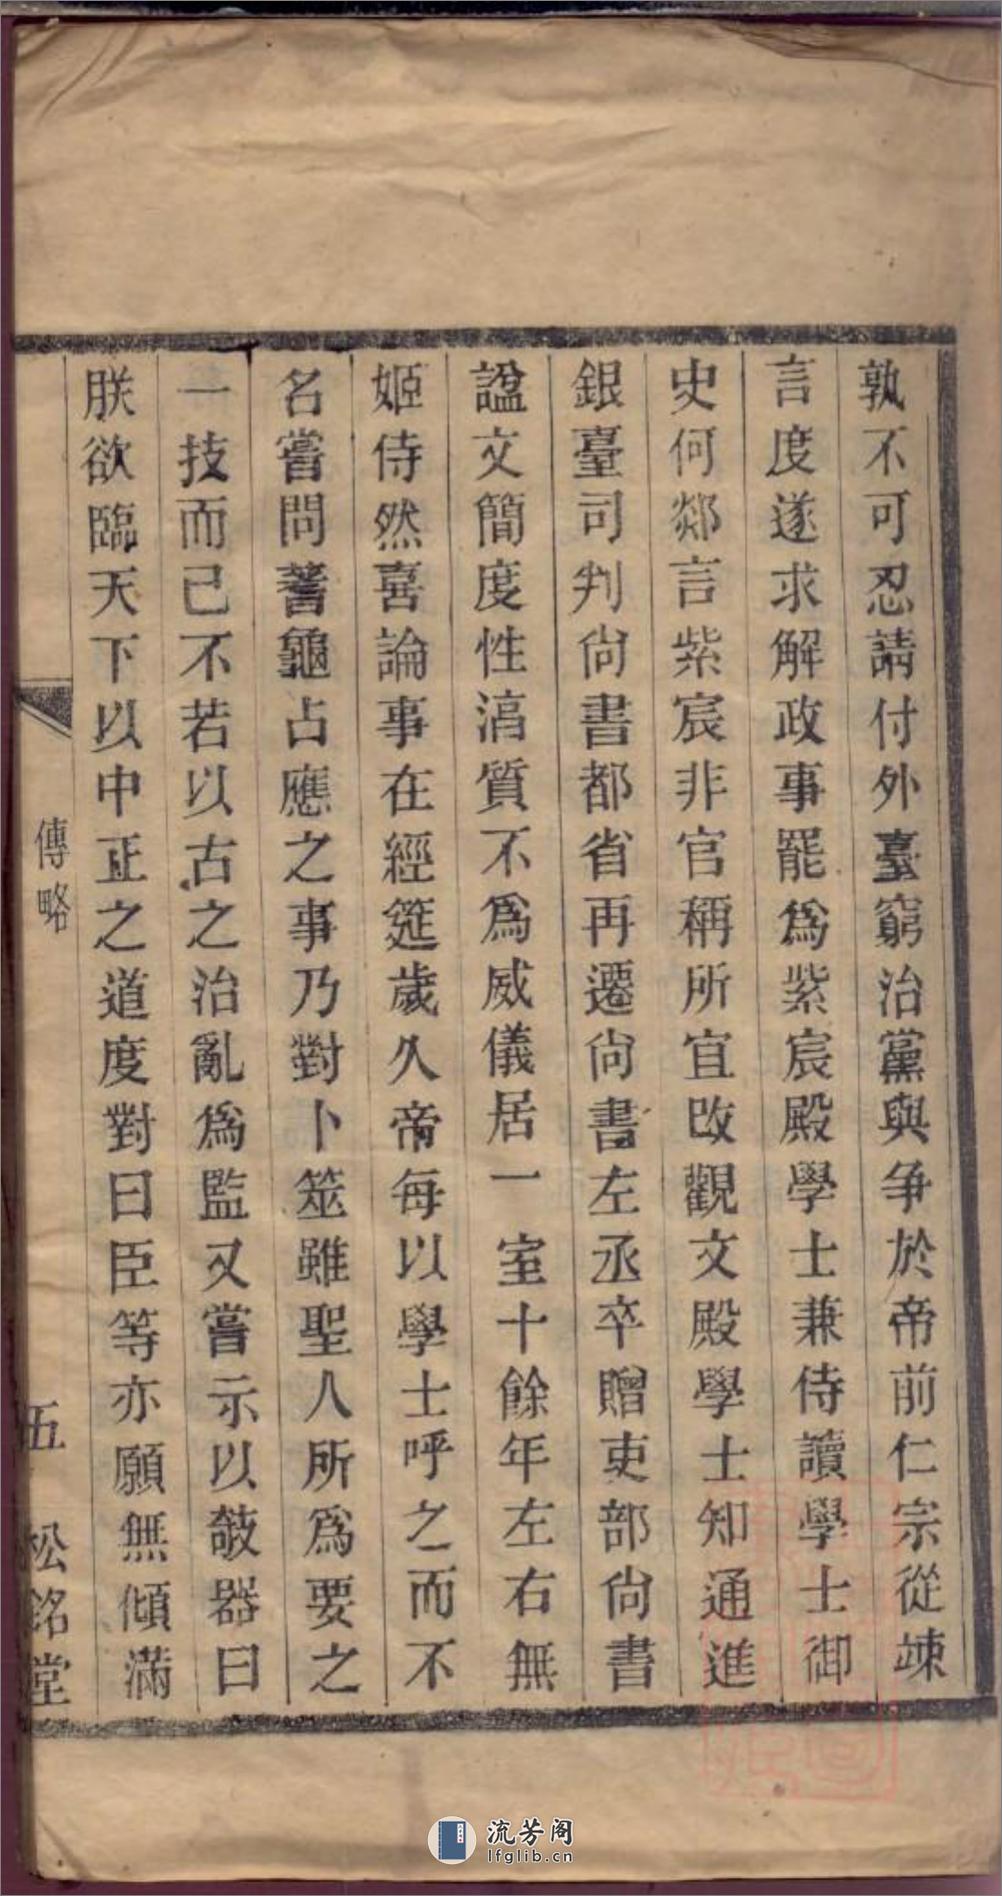 孰不可忍請付外臺窮治黨與爭於帝前仁宗從竦
言度遂求解政事罷為紫宸殿學士兼侍讀學士御
史何郯言紫宸非官稱所宜改觀文殿學士知通進
銀臺司判尙書都省再遷尙書左丞卒贈吏部尙書
諡文簡度性淳質不為威儀居一室十餘年左右無
姬侍然喜論事在經筵歲久帝每以學士呼之而不
名嘗問蓍龜占應之事乃對卜筮雖聖人所為要之
一技而已不若以古之治亂為監又嘗示以欹器曰
朕欲臨天下以中正之道度對曰臣等亦願無傾滿
傳略
五
松銘堂
流芳阁
lfglib.cn